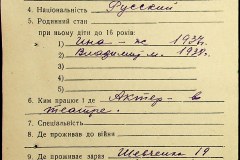 4. Національність Русский
5. Родинний стан
при ньому діти до 16 років:
1) Инна - ж 1934.
2) Владимир м. 1937.
3)
6. Ким працює і де Актер - в
театре.
7. Спеціальність
8. Де проживав до війни
9. Де проживає зараз Шевченка 19